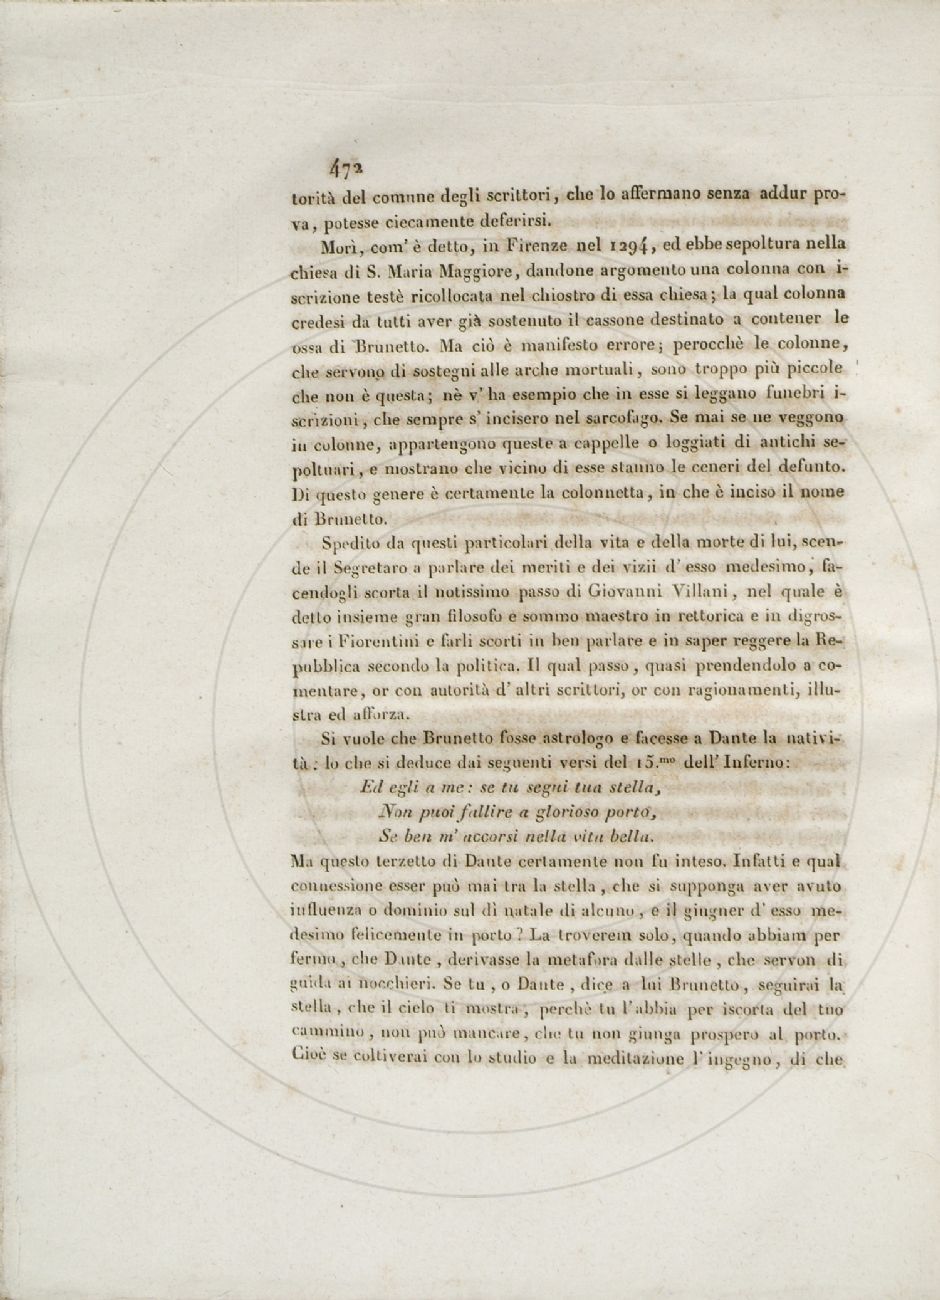 472
torità del comune degli scrittori, che lo affermano senza addur pro-
va, potesse ciecamente deferirsi.
Morì, com' è detto, in Firenze nel 1294, ed ebbe sepoltura nella
chiesa di S. Maria Maggiore, dandone argomento una colonna con i-
scrizione testè ricollocata nel chiostro di essa chiesa; la qual colonna
credesi da tutti aver già sostenuto il cassone destinato a contener le
ossa di Brunetto. Ma ciò è manifesto errore; perocchè le colonne,
che servono di sostegni alle arche mortuali, sono troppo più piccole
che non è questa; nè v' ha esempio che in esse si leggano funebri i-
scrizioni, che sempre s' incisero nel sarcofago. Se mai se ne veggono
in colonne, appartengono queste a cappelle o loggiati di antichi se-
poltuari, e mostrano che vicino di esse stanno le ceneri del defunto.
Di questo genere è certamente la colonnetta, in che è inciso il nome
di Brunetto.
Spedito da questi particolari della vita e della morte di lui, scen-
de il Segretaro a parlare dei meriti e dei vizii d' esso medesimo, fa-
cendogli scorta il notissimo passo di Giovanni Villani, nel quale è
detto insieme gran filosofo e sommo maestro in rettorica e in digros-
sare i Fiorentini e farli scorti in ben parlare e in saper reggere la Re-
pubblica secondo la politica. Il qual passo, quasi prendendolo a co-
mentare, or con autorità d' altri scrittori, or con ragionamenti, illu-
stra ed afforza.
Si vuole che Brunetto fosse astrologo e facesse a Dante la nativi-
tà: lo che si deduce dai seguenti versi del 15.mo dell' Inferno:
Ed egli a me: se tu segui tua stella,
Non puoi fallire a glorioso porto,
Se ben m' accorsi nella vita bella.
Ma questo terzetto di Dante certamente non fu inteso. Infatti e qual
connessione esser può mai tra la stella, che si supponga aver avuto
influenza o dominio sul dì natale di alcuno, e il giugner d' esso me-
desimo felicemente in porto? La troverem solo, quando abbiam per
fermo, che Dante, derivasse la metafora dalle stelle, che servon di
guida ai nocchieri. Se tu, o Dante, dice a lui Brunetto, seguirai la
stella, che il cielo ti mostra, perchè tu l'abbia per iscorta del tuo
cammino, non può mancare, che tu non giunga prospero al porto.
Cioè se coltiverai con lo studio e la meditazione l'ingegno, di che